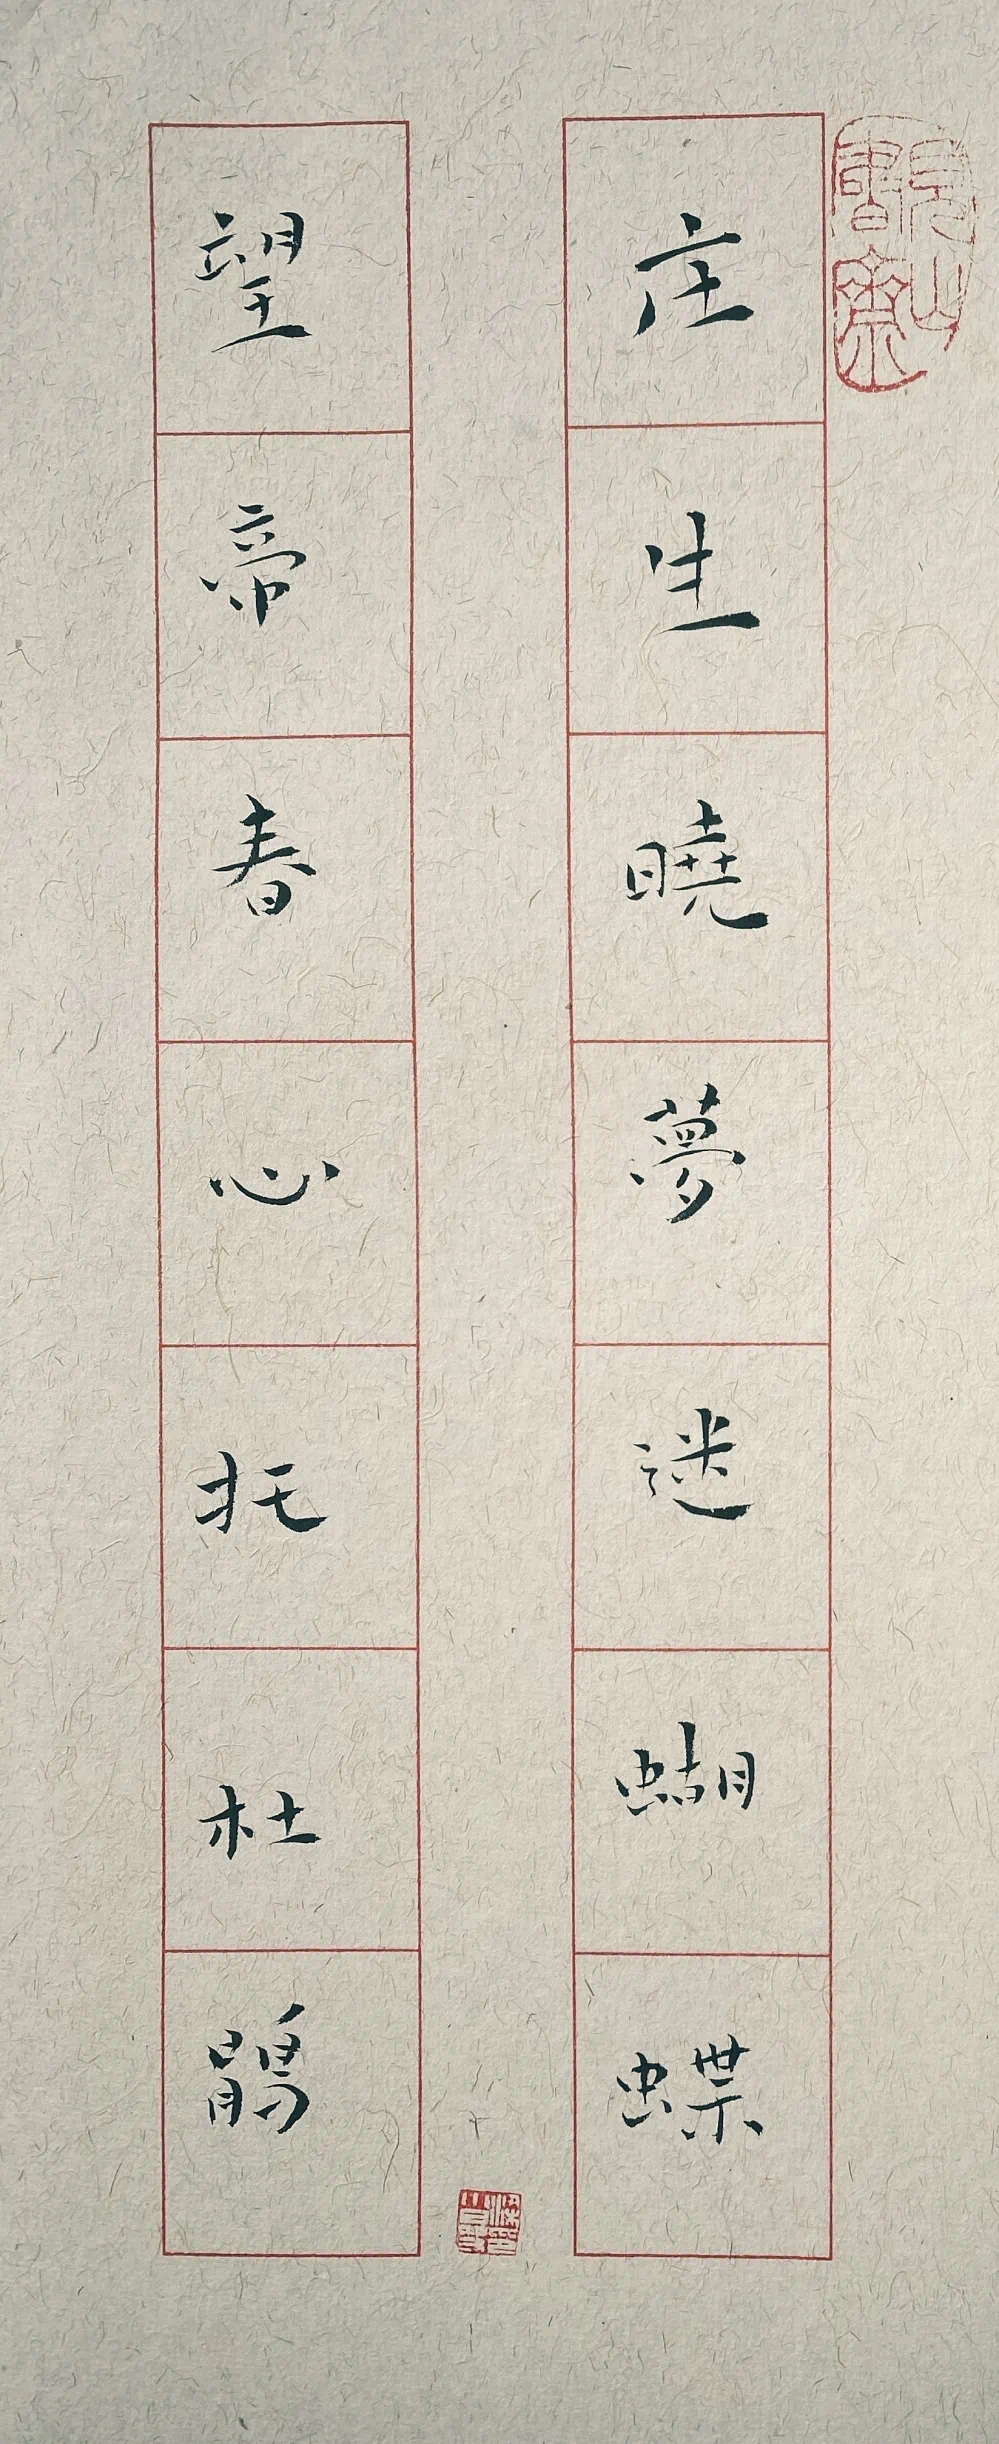 庄生曉夢迷蝴蝶
望帝春心托杜鵑